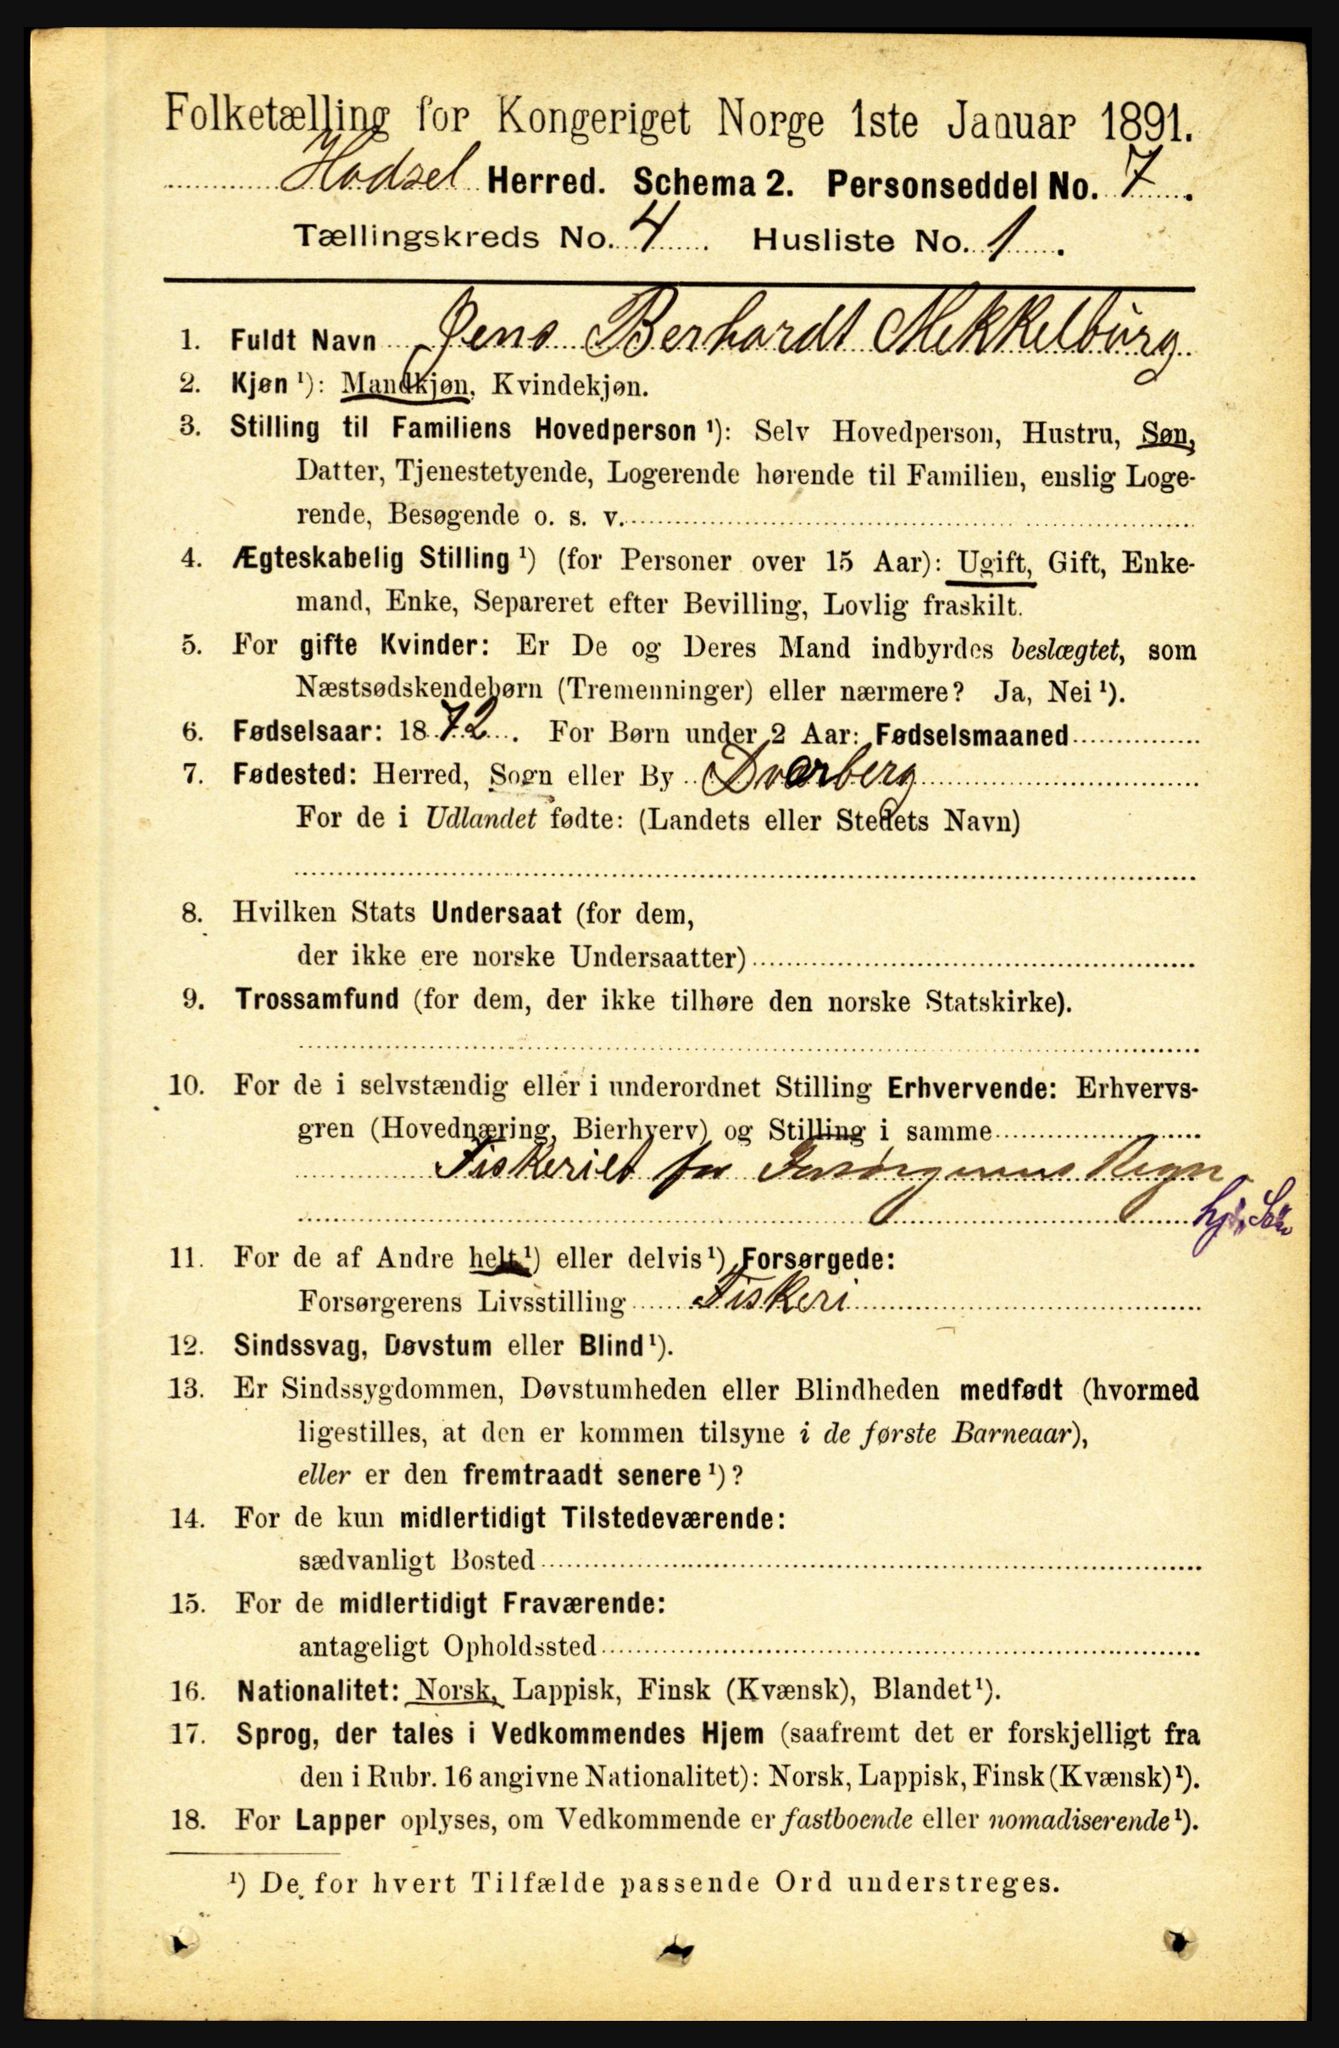 Folketælling for Kongeriget Norge 1ste Januar 1891.
Hadsel Herred. Schema 2. Personseddel No. 7.
Tællingskreds No. 4. Husliste No. 1.
1. Fuldt Navn Jens Berhardt Mekkelbürg
2. Kjøn ¹): Mandkjøn, Kvindekjøn.
3. Stilling til Familiens Hovedperson ¹): Selv Hovedperson, Hustru, Søn,
Datter, Tjenestetyende, Logerende hørende til Familien, enslig Loge-
rende, Besøgende o. s. v.
4. Ægteskabelig Stilling ¹) (for Personer over 15 Aar): Ugift, Gift, Enke-
mand, Enke, Separeret efter Bevilling, Lovlig fraskilt.
5. For gifte Kvinder: Er De og Deres Mand indbyrdes beslægtet, som
Næstsødskendebørn (Tremenninger) eller nærmere? Ja, Nei ¹).
6. Fødselsaar: 1872. For Børn under 2 Aar: Fødselsmaaned
7. Fødested: Herred, Sogn eller By Dverberg
For de i Udlandet fødte: (Landets eller Stedets Navn)
8. Hvilken Stats Undersaat (for dem,
der ikke ere norske Undersaatter)
9. Trossamfund (for dem, der ikke tilhøre den norske Statskirke).
10. For de i selvstændig eller i underordnet Stilling Erhvervende: Erhvervs-
gren (Hovednæring, Bierhverv) og Stilling i samme
Fiskeriet for Forsørgerens Regn
hj. Søn
11. For de af Andre helt ¹) eller delvis ¹) Forsørgede:
Forsørgerens Livsstilling Fiskeri
12. Sindssvag, Døvstum eller Blind ¹).
13. Er Sindssygdommen, Døvstumheden eller Blindheden medfødt (hvormed
ligestilles, at den er kommen tilsyne i de første Barneaar),
eller er den fremtraadt senere ¹)?
14. For de kun midlertidigt Tilstedeværende:
sædvanligt Bosted
15. For de midlertidigt Fraværende:
antageligt Opholdssted
16. Nationalitet: Norsk, Lappisk, Finsk (Kvænsk), Blandet ¹).
17. Sprog, der tales i Vedkommendes Hjem (saafremt det er forskjelligt fra
den i Rubr. 16 angivne Nationalitet): Norsk, Lappisk, Finsk (Kvænsk) ¹).
18. For Lapper oplyses, om Vedkommende er fastboende eller nomadiserende ¹).
¹) De for hvert Tilfælde passende Ord understreges.